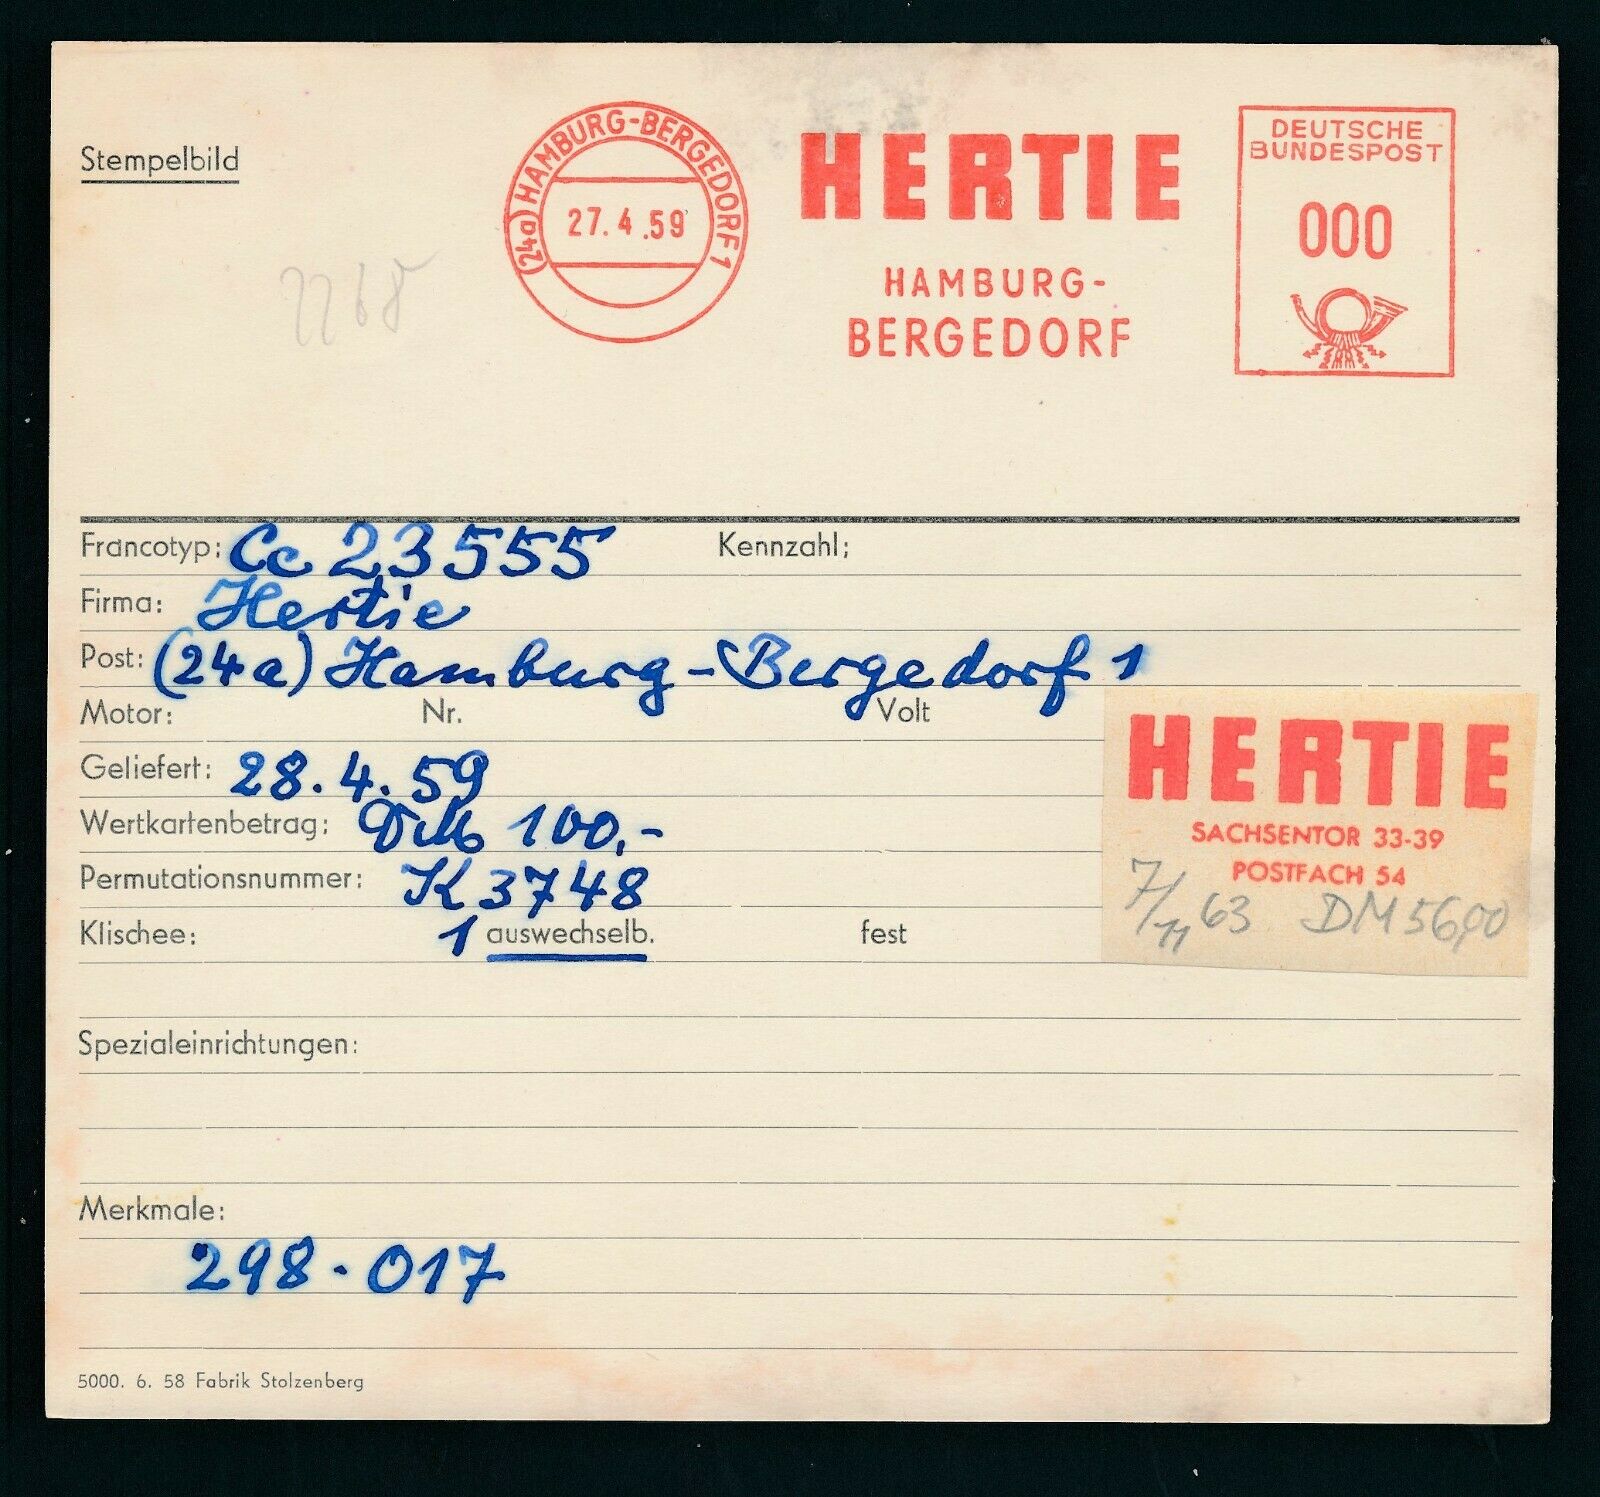 Stempelbild
(24a) HAMBURG-BERGEDORF 1
27.4.59
HERTIE
HAMBURG-
BERGEDORF
DEUTSCHE
BUNDESPOST
000
Francotyp: Cc 23555 Kennzahl:
Firma: Hertie
Post: (24a) Hamburg-Bergedorf 1
Motor: Nr. Volt
Geliefert: 28.4.59
Wertkartenbetrag: DM 100,-
Permutationsnummer: K 3748
Klischee: 1 auswechselb. fest
HERTIE
SACHSENTOR 33-39
POSTFACH 54
7/11 63 DM 56,00
Spezialeinrichtungen:
Merkmale:
298-017
5000. 6. 58 Fabrik Stolzenberg